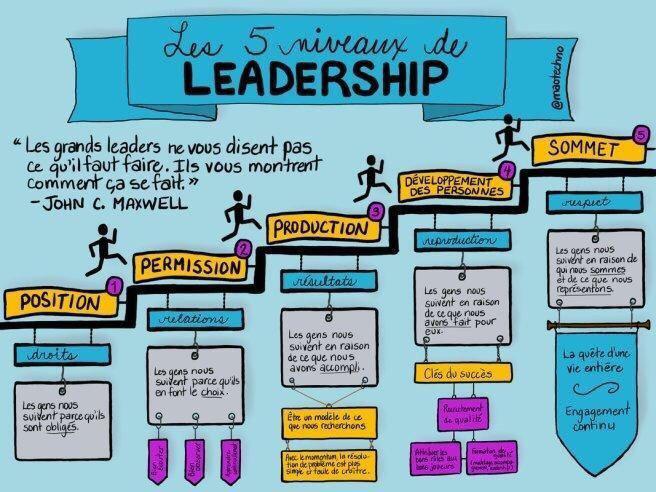 Les 5 niveaux de
LEADERSHIP
@maotechno
"Les grands leaders ne vous disent pas
ce qu'il faut faire. Ils vous montrent
comment ça se fait."
- JOHN C. MAXWELL
POSITION
1
droits
Les gens nous
suivent parce qu'ils
sont obligés.
PERMISSION
2
relations
Les gens nous
suivent parce qu'ils
en font le choix.
Bien
écouter
Bien
observer
PRODUCTION
3
résultats
Les gens nous
suivent en raison
de ce que nous
avons accompli.
Être un modèle de ce
que nous recherchons
Avec le momentum, la résolu-
tion de problème est plus
simple et facile de croître.
DÉVELOPPEMENT
DES PERSONNES
4
reproduction
Les gens nous
suivent en raison
de ce que nous
avons fait pour
eux.
Clés du succès
Recrutement
de qualité
Attribuer les
bons rôles aux
bons joueurs
Formation de
qualité
SOMMET
5
respect
Les gens nous
suivent en raison de
qui nous sommes
et de ce que nous
représentons.
La quête d'une
vie entière
Engagement
continu